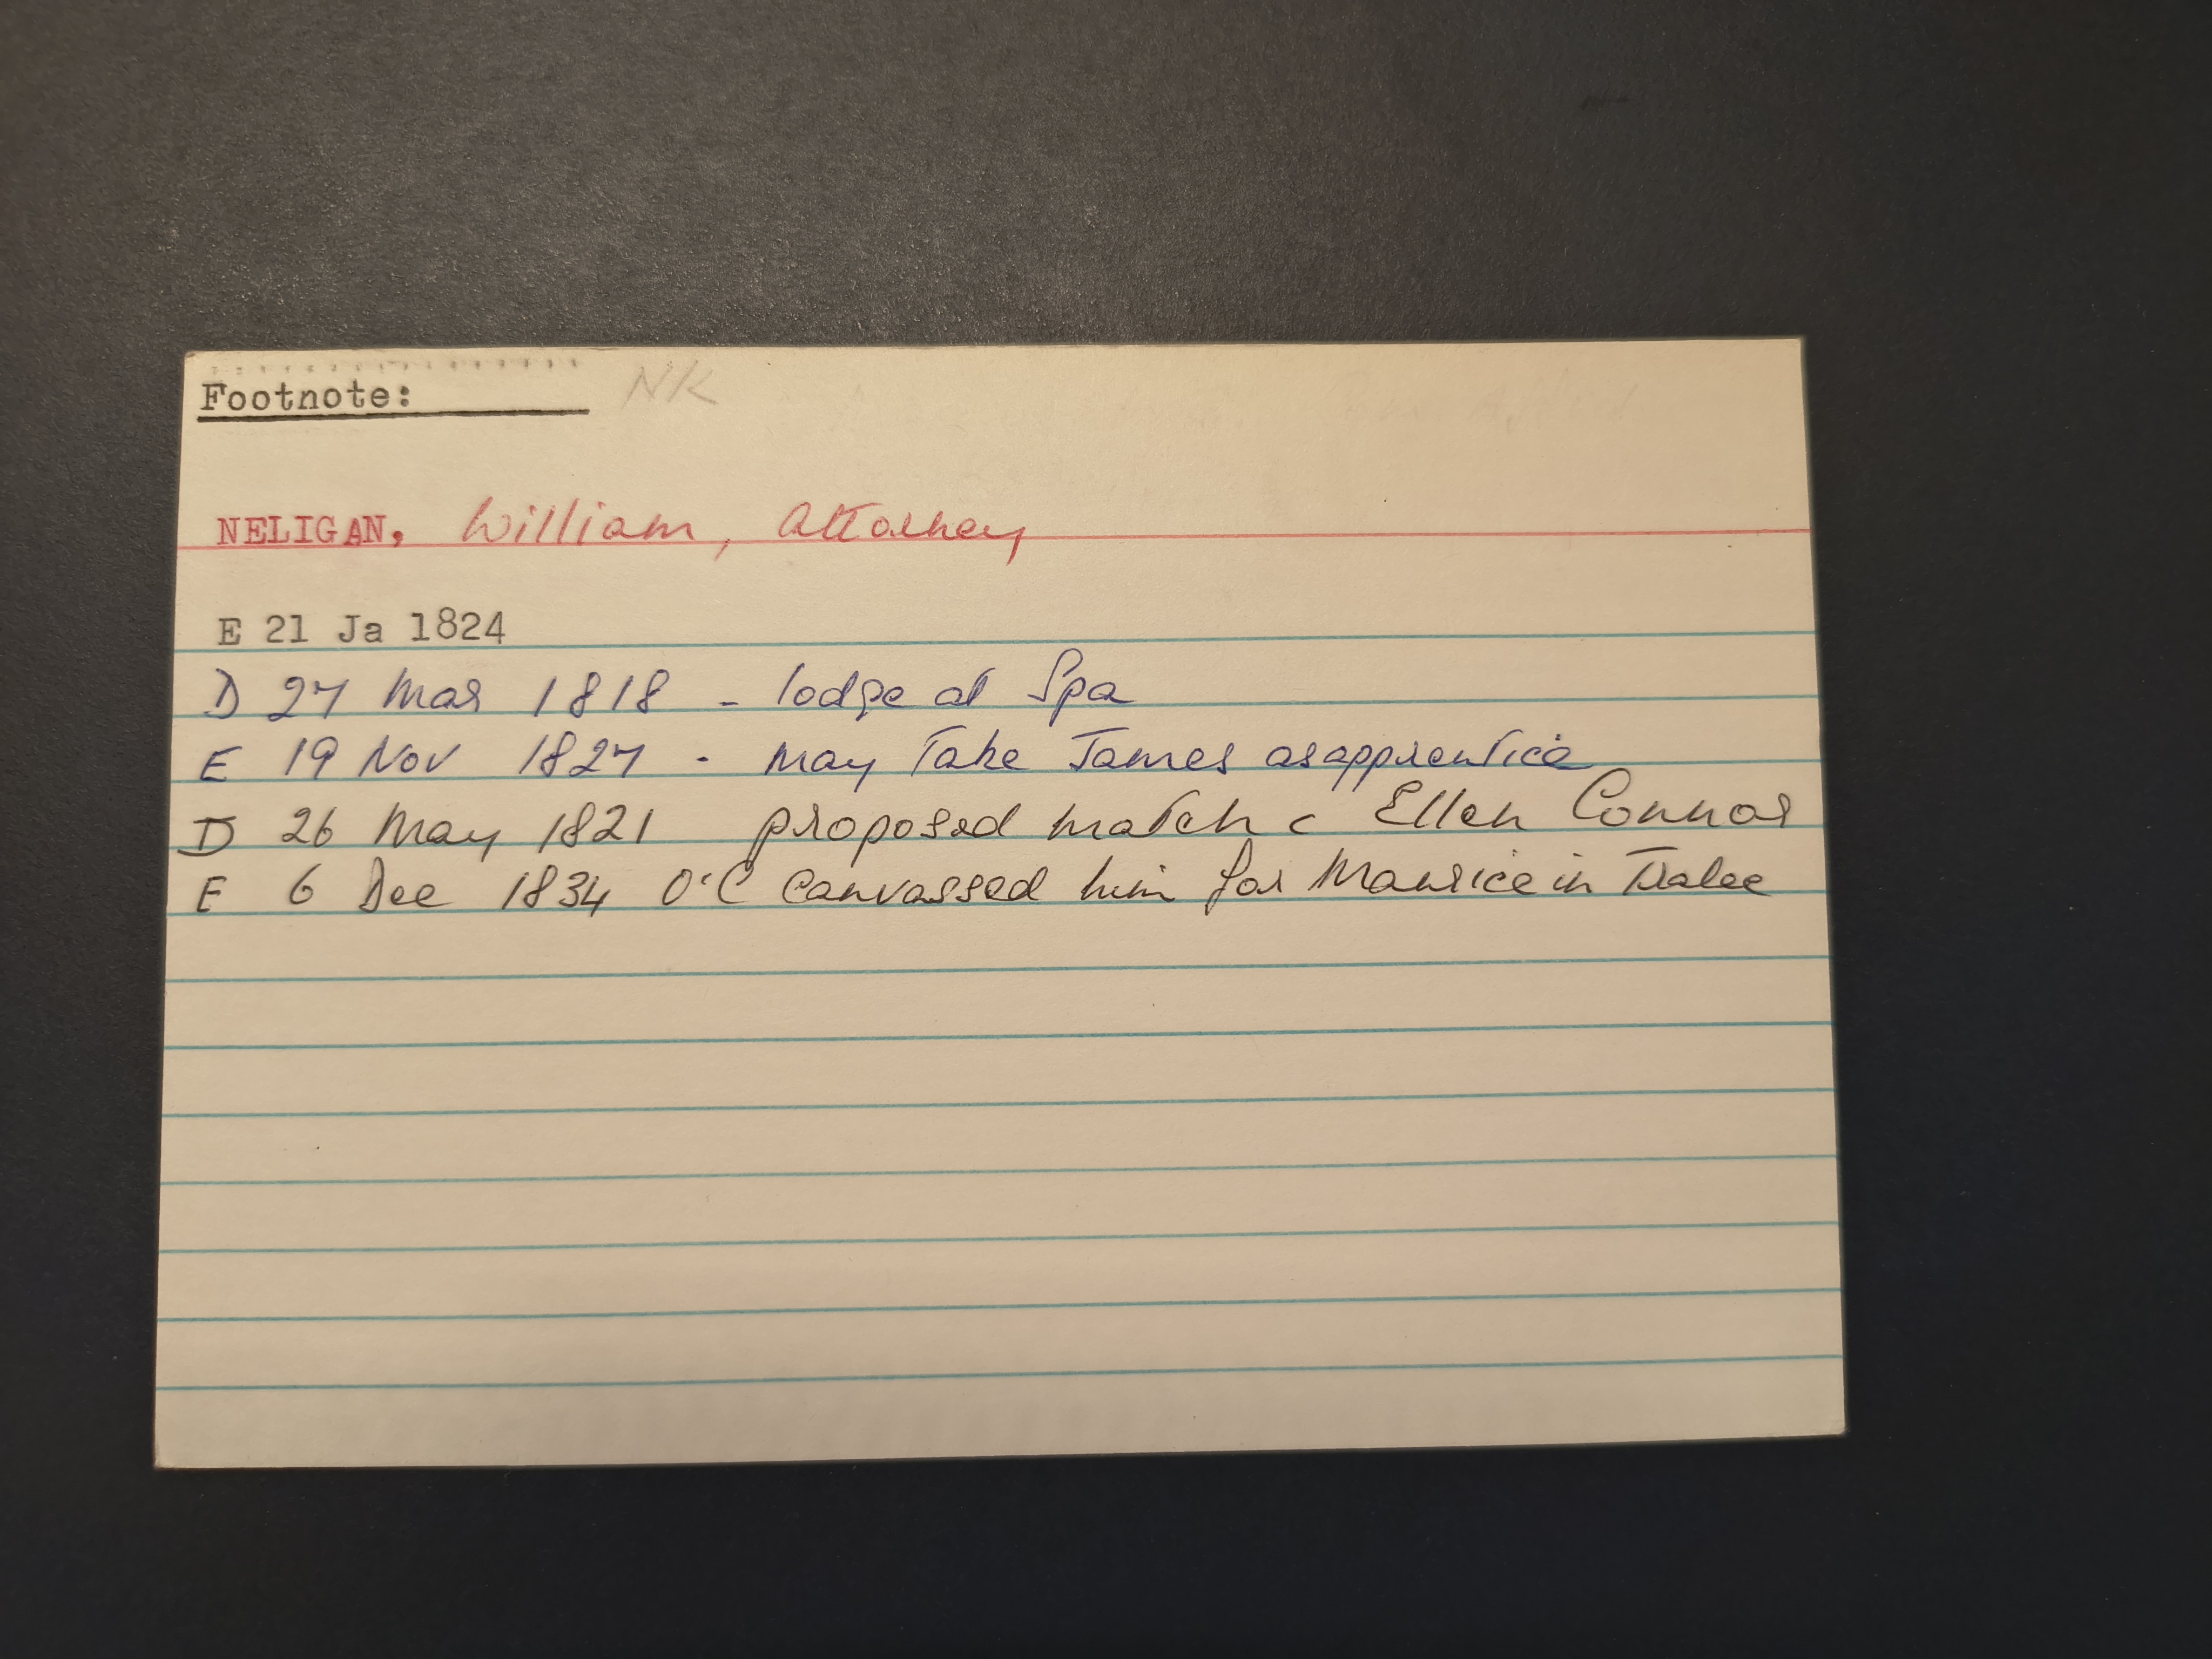 Footnote: NK
NELIGAN, William, Attorney
E 21 Ja 1824
D 27 Mar 1818 - lodge at Spa
E 19 Nov 1827 - may take James as apprentice
D 26 May 1821 proposed match c Ellen Connor
E 6 Dec 1834 O'C canvassed him for Maurice in Tralee